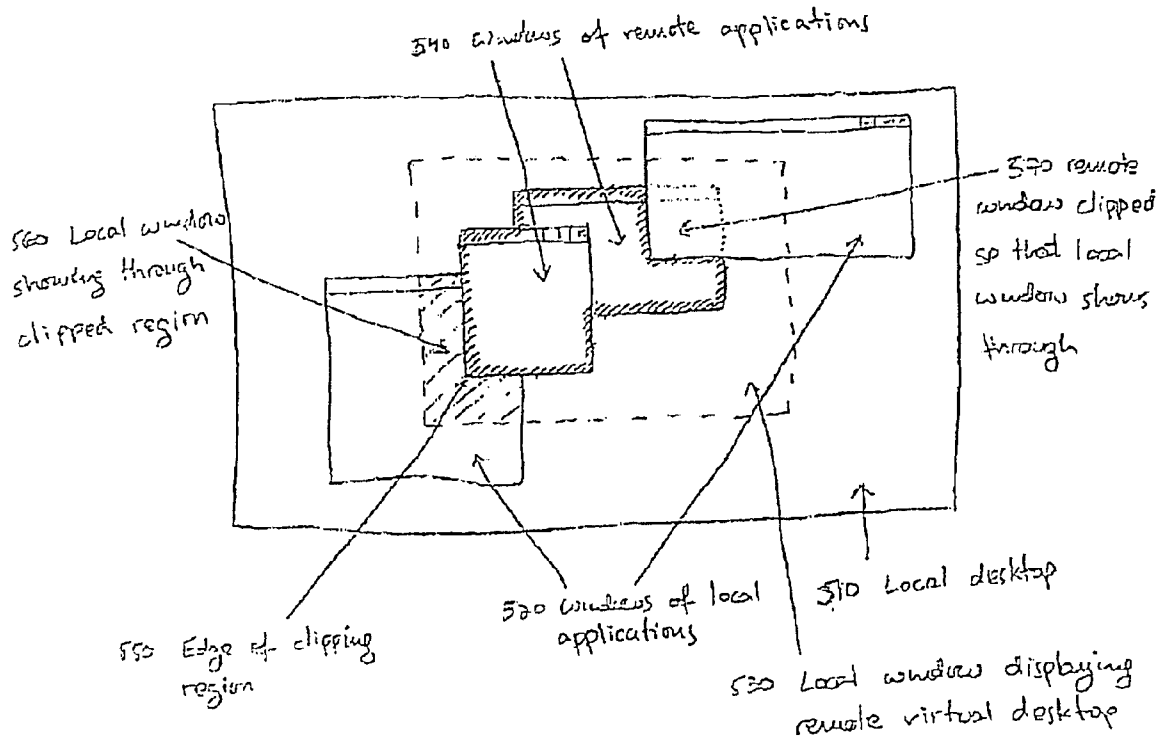 540 windows of remote applications
560 Local window
showing through
clipped region
570 remote
window clipped
so that local
window shows
through
550 Edge of clipping
region
520 windows of local
applications
510 Local desktop
530 Local window displaying
remote virtual desktop